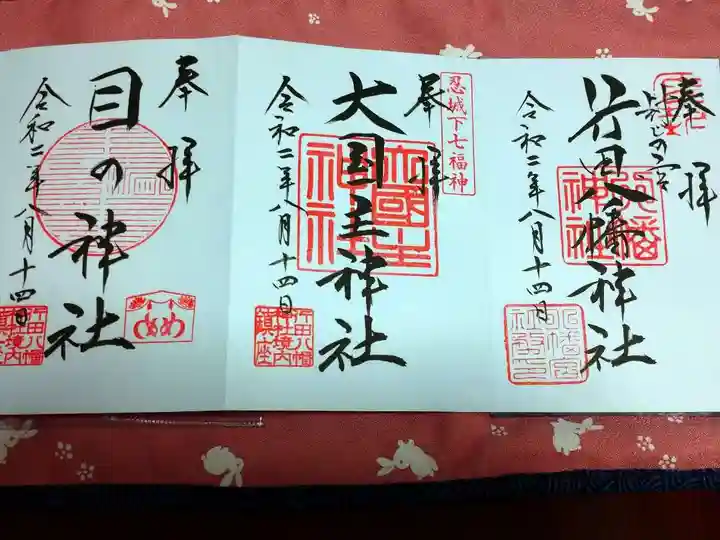 奉拝
封じの宮
行田八幡神社
令和二年八月十四日
忍城下七福神
奉拝
大国主神社
大國主神社
令和二年八月十四日
行田八幡
神社境内
鎮座
奉拝
目の神社
令和二年八月十四日
めめ
行田八幡
神社境内
鎮座